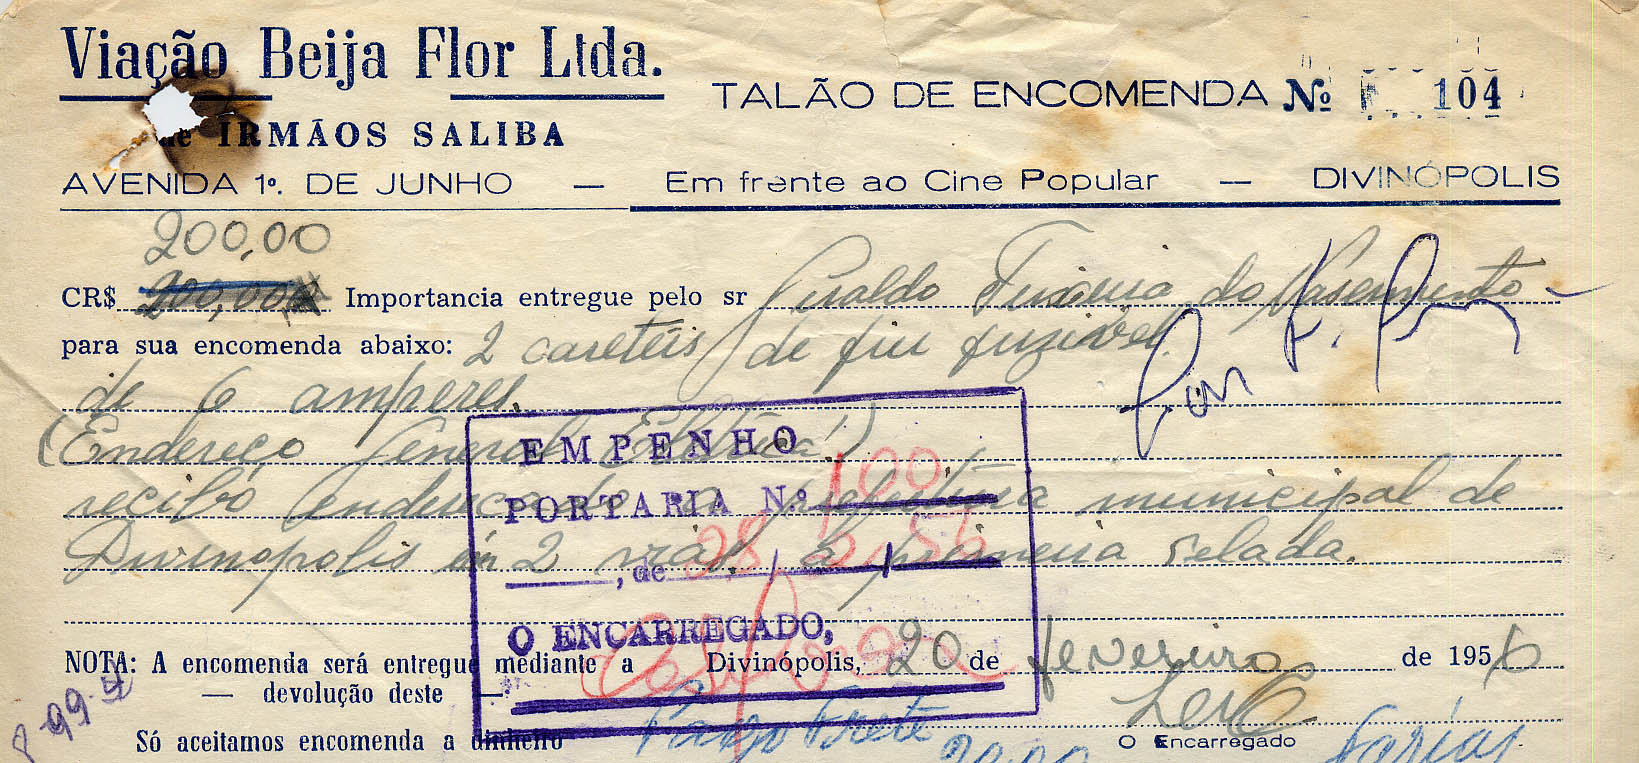 Viação Beija Flor Ltda.
TALÃO DE ENCOMENDA Nº 104
de IRMÃOS SALIBA
AVENIDA 1º. DE JUNHO — Em frente ao Cine Popular — DIVINÓPOLIS
200,00
CR$ 200,00 Importancia entregue pelo sr Geraldo Teixeira do Nascimento
para sua encomenda abaixo: 2 caretéis de fiu fuzivel
de 6 amperes.
(Endereço General Elétrica)
recibo endereçado a prefeitura municipal de
Divinopolis em 2 vias, a primeira selada.
EMPENHO
PORTARIA N.º 100
, de 28/2/56
O ENCARREGADO,
NOTA: A encomenda será entregue mediante a
— devolução deste —
Divinópolis, 20 de fevereiro de 1956
Só aceitamos encomenda a dinheiro
Pago Frete
20,00
O Encarregado
Farias